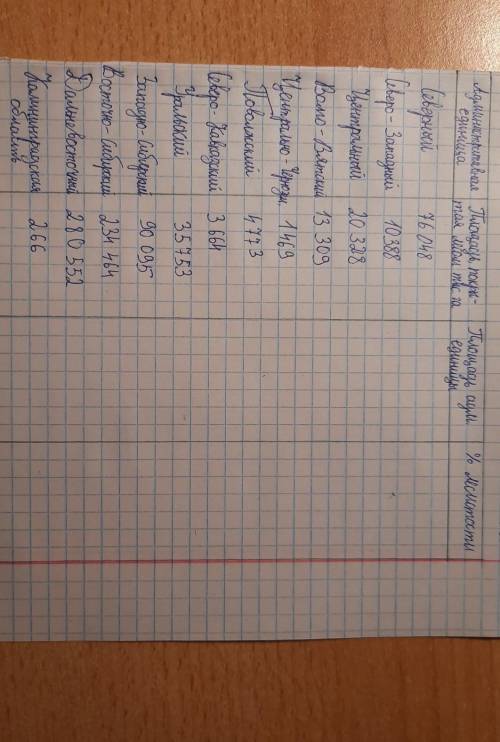 Административная единица | Площадь покрытая лесом тыс га | Площадь адм. единицы | % лесистости
Северный 76 048
Северо-Западный 10388
Центральный 20 328
Волго-Вятский 13 309
Центрально-Чернозн. 1469
Поволжский 4773
Северо-Кавказский 3 664
Уральский 35 753
Западно-Сибирский 90 095
Восточно-Сибирский 234 464
Дальневосточный 280 552
Калининградская область 266